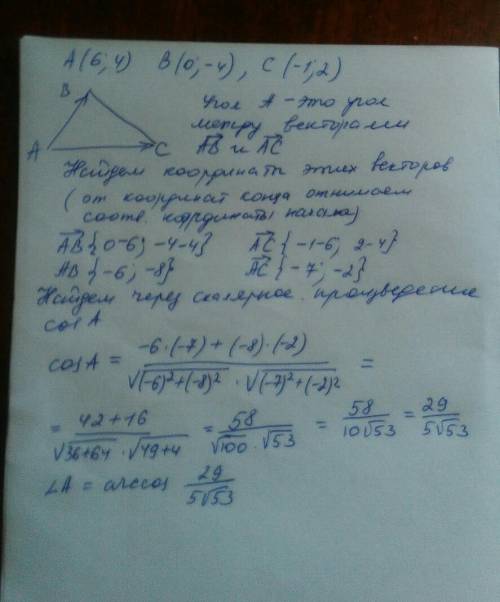 A(6; 4) B(0; -4), C(-1; 2)
B
A
C
Угол A - это угол
между векторами
AB и AC
Найдем координаты этих векторов
(от координат конца отнимаем
соотв. координаты начала)
AB{0-6; -4-4} AC{-1-6; 2-4}
AB{-6; -8} AC{-7; -2}
Найдем через скалярное произведение
cos A
cos A = (-6·(-7) + (-8)·(-2)) / (√(-6)²+(-8)² · √(-7)²+(-2)²) =
= (42+16) / (√36+64 · √49+4) = 58 / (√100 · √53) = 58 / 10√53 = 29 / 5√53
∠A = arccos 29 / 5√53